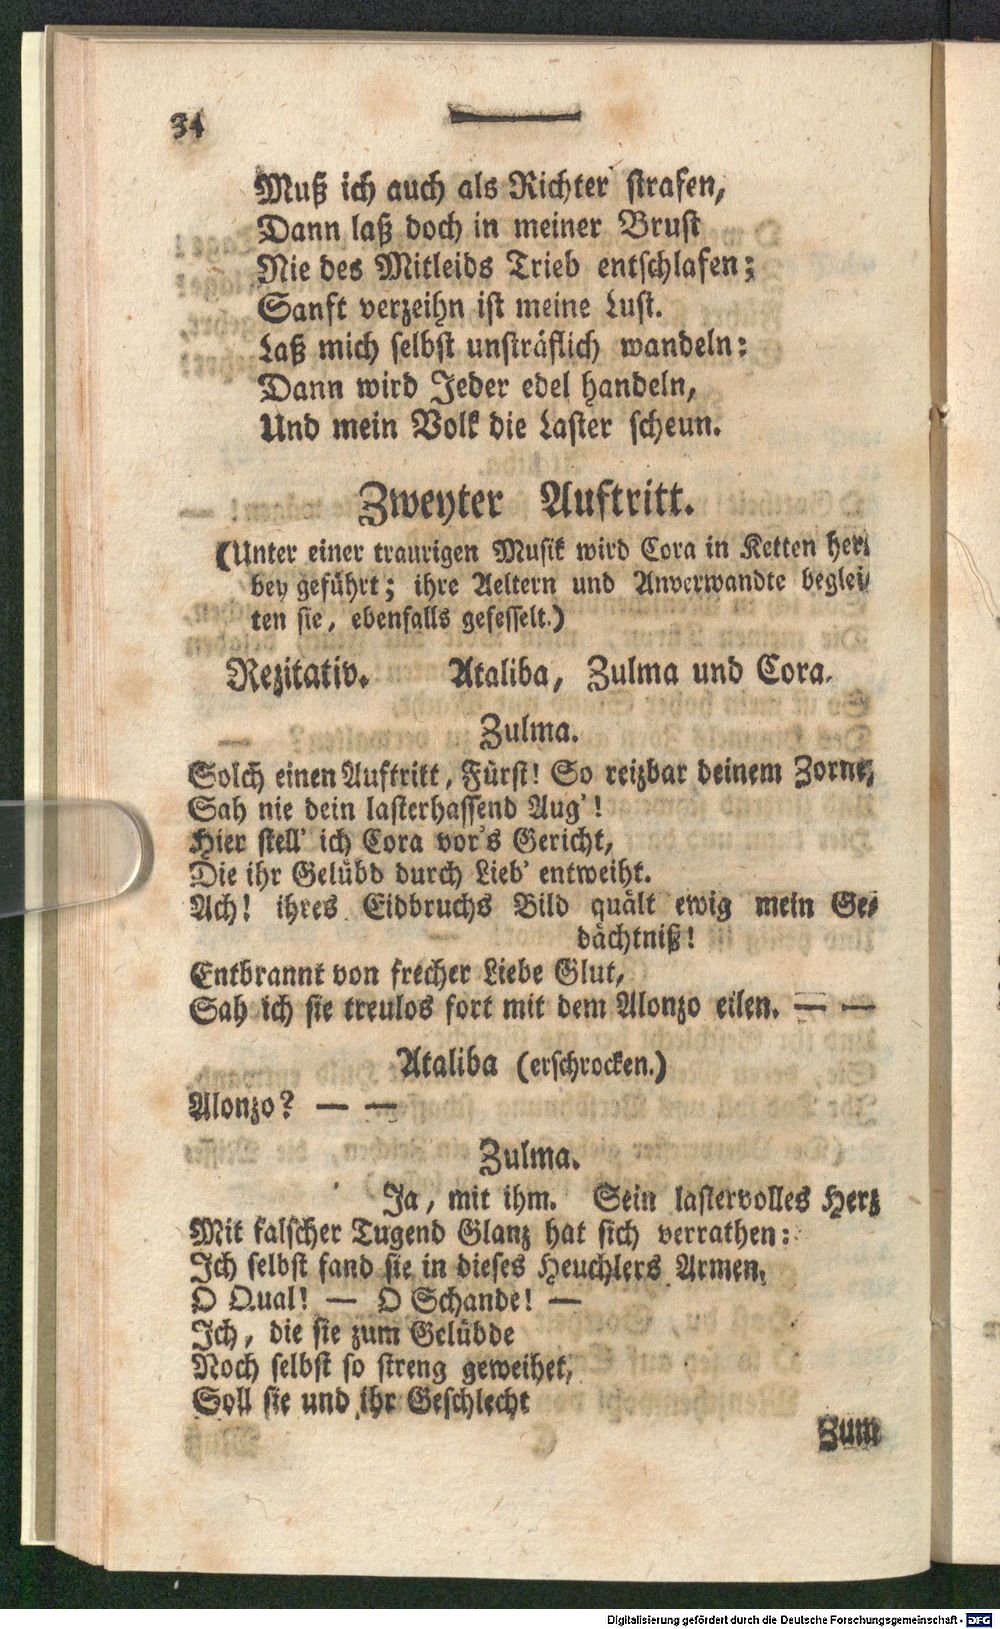 34
Muß ich auch als Richter strafen,
Dann laß doch in meiner Brust
Nie des Mitleids Trieb entschlafen;
Sanft verzeihn ist meine Lust.
Laß mich selbst unsträflich wandeln:
Dann wird Jeder edel handeln,
Und mein Volk die Laster scheun.
Zweyter Auftritt.
(Unter einer traurigen Musik wird Cora in Ketten her-
bey geführt; ihre Aeltern und Anverwandte beglei-
ten sie, ebenfalls gefesselt.)
Rezitativ. Ataliba, Zulma und Cora.
Zulma.
Solch einen Auftritt, Fürst! So reizbar deinem Zorne,
Sah nie dein lasterhassend Aug'!
Hier stell' ich Cora vor's Gericht,
Die ihr Gelübd durch Lieb' entweiht.
Ach! ihres Eidbruchs Bild quält ewig mein Ge-
dächtniß!
Entbrannt von frecher Liebe Glut,
Sah ich sie treulos fort mit dem Alonzo eilen. — —
Ataliba (erschrocken.)
Alonzo? — —
Zulma.
Ja, mit ihm. Sein lastervolles Herz
Mit falscher Tugend Glanz hat sich verrathen:
Ich selbst fand sie in dieses Heuchlers Armen,
O Qual! — O Schande! —
Ich, die sie zum Gelübde
Noch selbst so streng geweihet,
Soll sie und ihr Geschlecht
Zum
Digitalisierung gefördert durch die Deutsche Forschungsgemeinschaft - DFG